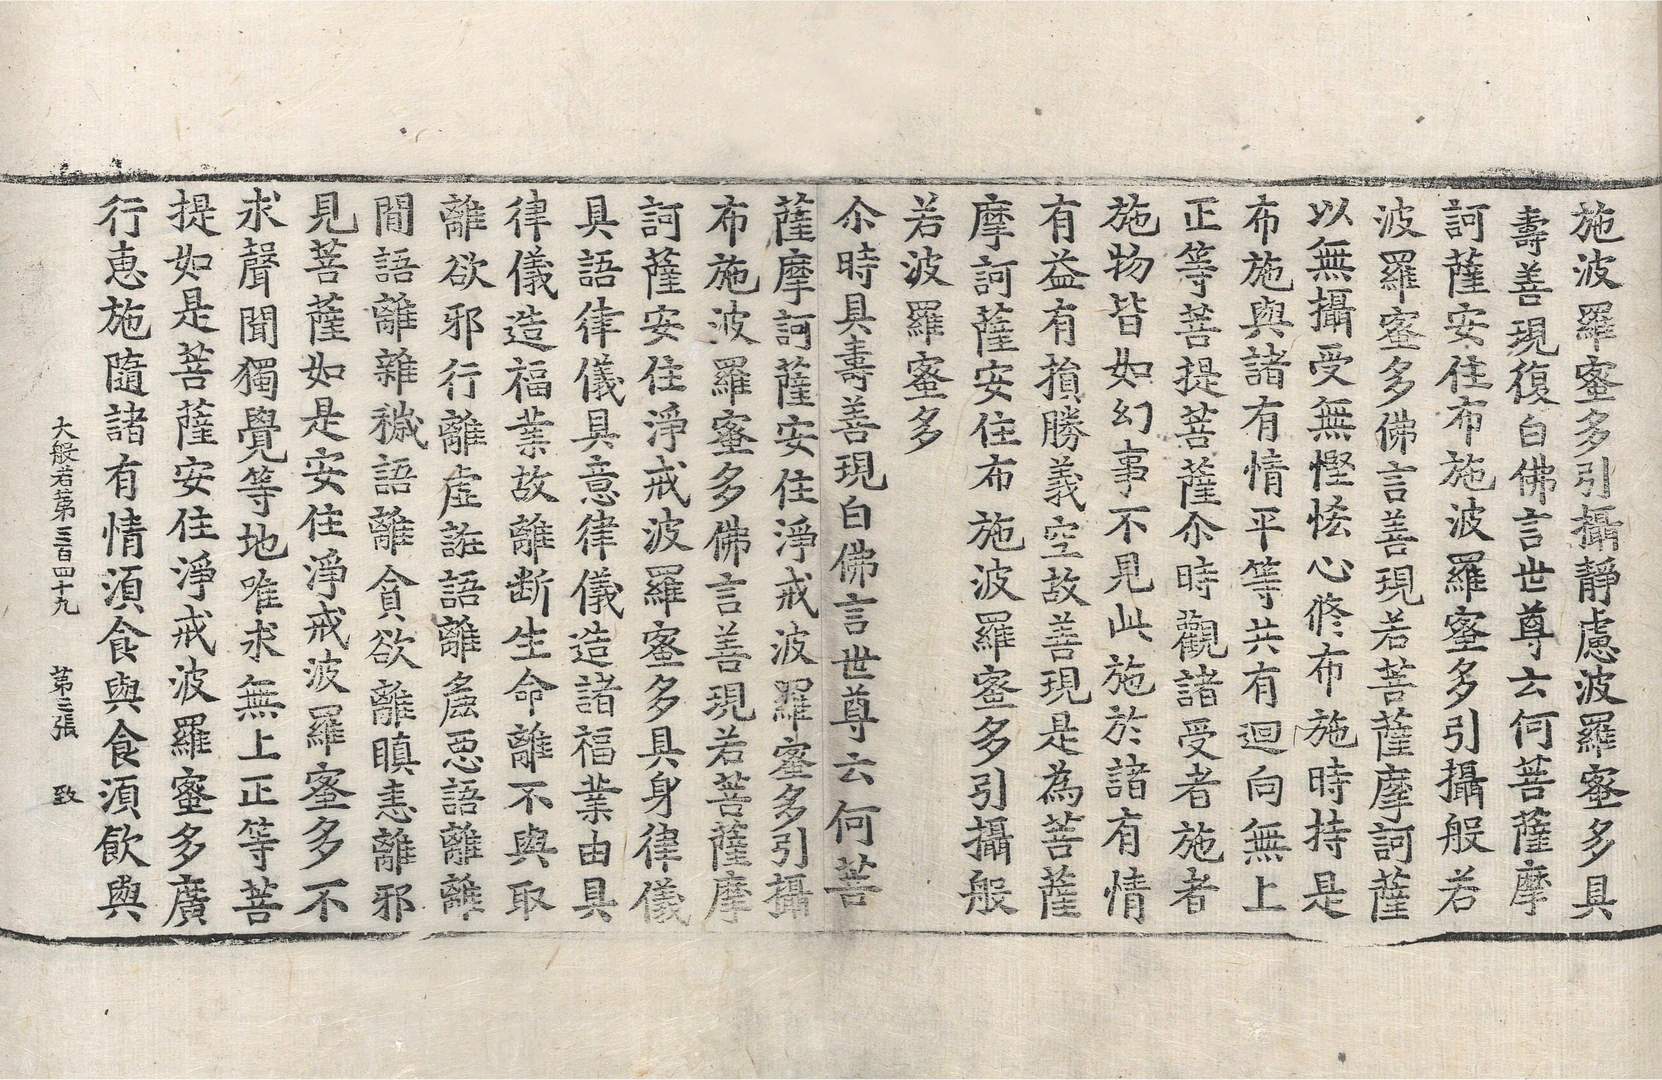 施波羅蜜多引攝靜慮波羅蜜多具
壽善現復白佛言世尊云何菩薩摩
訶薩安住布施波羅蜜多引攝般若
波羅蜜多佛言善現若菩薩摩訶薩
以無攝受無慳悋心修布施時持是
布施與諸有情平等共有迴向無上
正等菩提菩薩尒時觀諸受者施者
施物皆如幻事不見此施於諸有情
有益有損勝義空故善現是為菩薩
摩訶薩安住布施波羅蜜多引攝般
若波羅蜜多
尒時具壽善現白佛言世尊云何菩
薩摩訶薩安住淨戒波羅蜜多引攝
布施波羅蜜多佛言善現若菩薩摩
訶薩安住淨戒波羅蜜多具身律儀
具語律儀具意律儀造諸福業由具
律儀造福業故離斷生命離不與取
離欲邪行離虛誑語離麁惡語離離
間語離雜穢語離貪欲離瞋恚離邪
見菩薩如是安住淨戒波羅蜜多不
求聲聞獨覺等地唯求無上正等菩
提如是菩薩安住淨戒波羅蜜多廣
行恵施隨諸有情湏食與食湏飲與
大般若第三百四十九 第二張 致